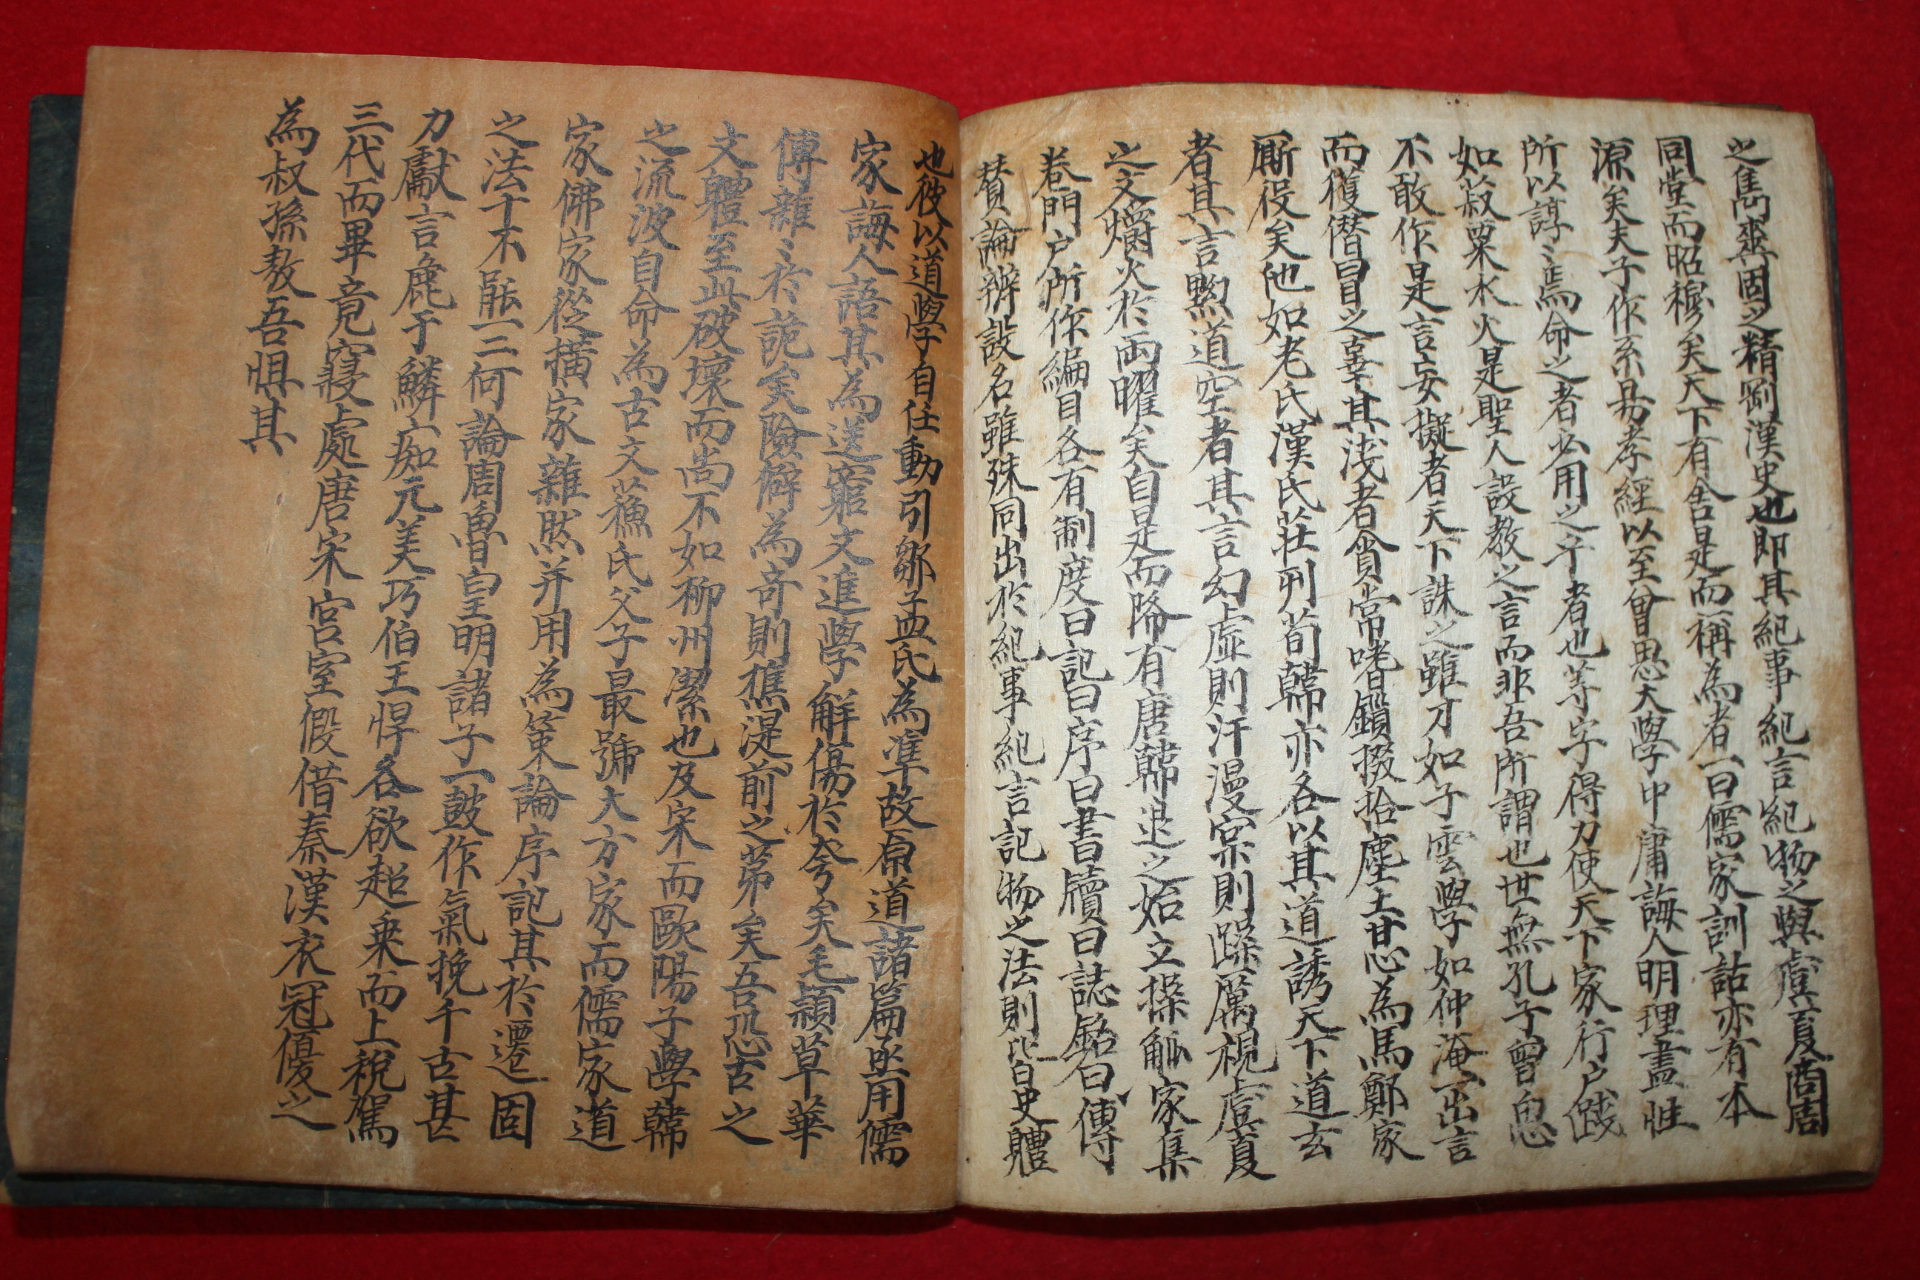 之雋與固之精剛漢史也即其紀事紀言紀物之與虞夏商周
同堂而昭穆矣天下有舍是而稱為者一曰儒家訓詁亦有本
源矣夫子作系易孝經以至曾思大學中庸誨人明理盡性
所以諄〻焉命之者必用之乎者也等字字得力使天下家行戶踐
如菽粟水火是聖人設教之言而非吾所謂也世無孔子曾思
不敢作是言妄擬者天下誅之雖才如子雲學如仲淹一出言
而獲僭冒之辜其淺者貪常嗜鎖掇拾塵土甘心為馬鄭家
厮役矣他如老氏漢氏莊列荀韓亦各以其道誘天下道玄
者其言黝道空者其言幻虛則汗漫察則躁厲視虞夏
之文爝火於兩曜矣自是而降有唐韓退之始立操觚家集
卷門戶所作編目各有制度曰記曰序曰書牘曰誌銘曰傳
賛論辨設名雖殊同出於紀事紀言記物之法則皆史軆
也彼以道學自任動引鄒孟氏為準故原道諸篇亟用儒
家誨人語其為送窮文進學解傷於夸矣毛穎草華
傳離〻於詭矣險僻為奇則樵湜前之茅矣吾恐古之
文軆至此破壞而尚不如柳州潔也及宋而歐陽子學韓
之流波自命為古文蘓氏父子最號大方家而儒家道
家佛家從撗家雜然并用為策論序記其於遷固
之法十不能一二何論周魯皇明諸子一皷作氣挽千古甚
力獻言麁于鱗痴元美巧伯王悍各欲超乘而上稅駕
三代而畢竟寢處唐宋宮室假借秦漢衣冠優之
為叔孫敖吾惧其